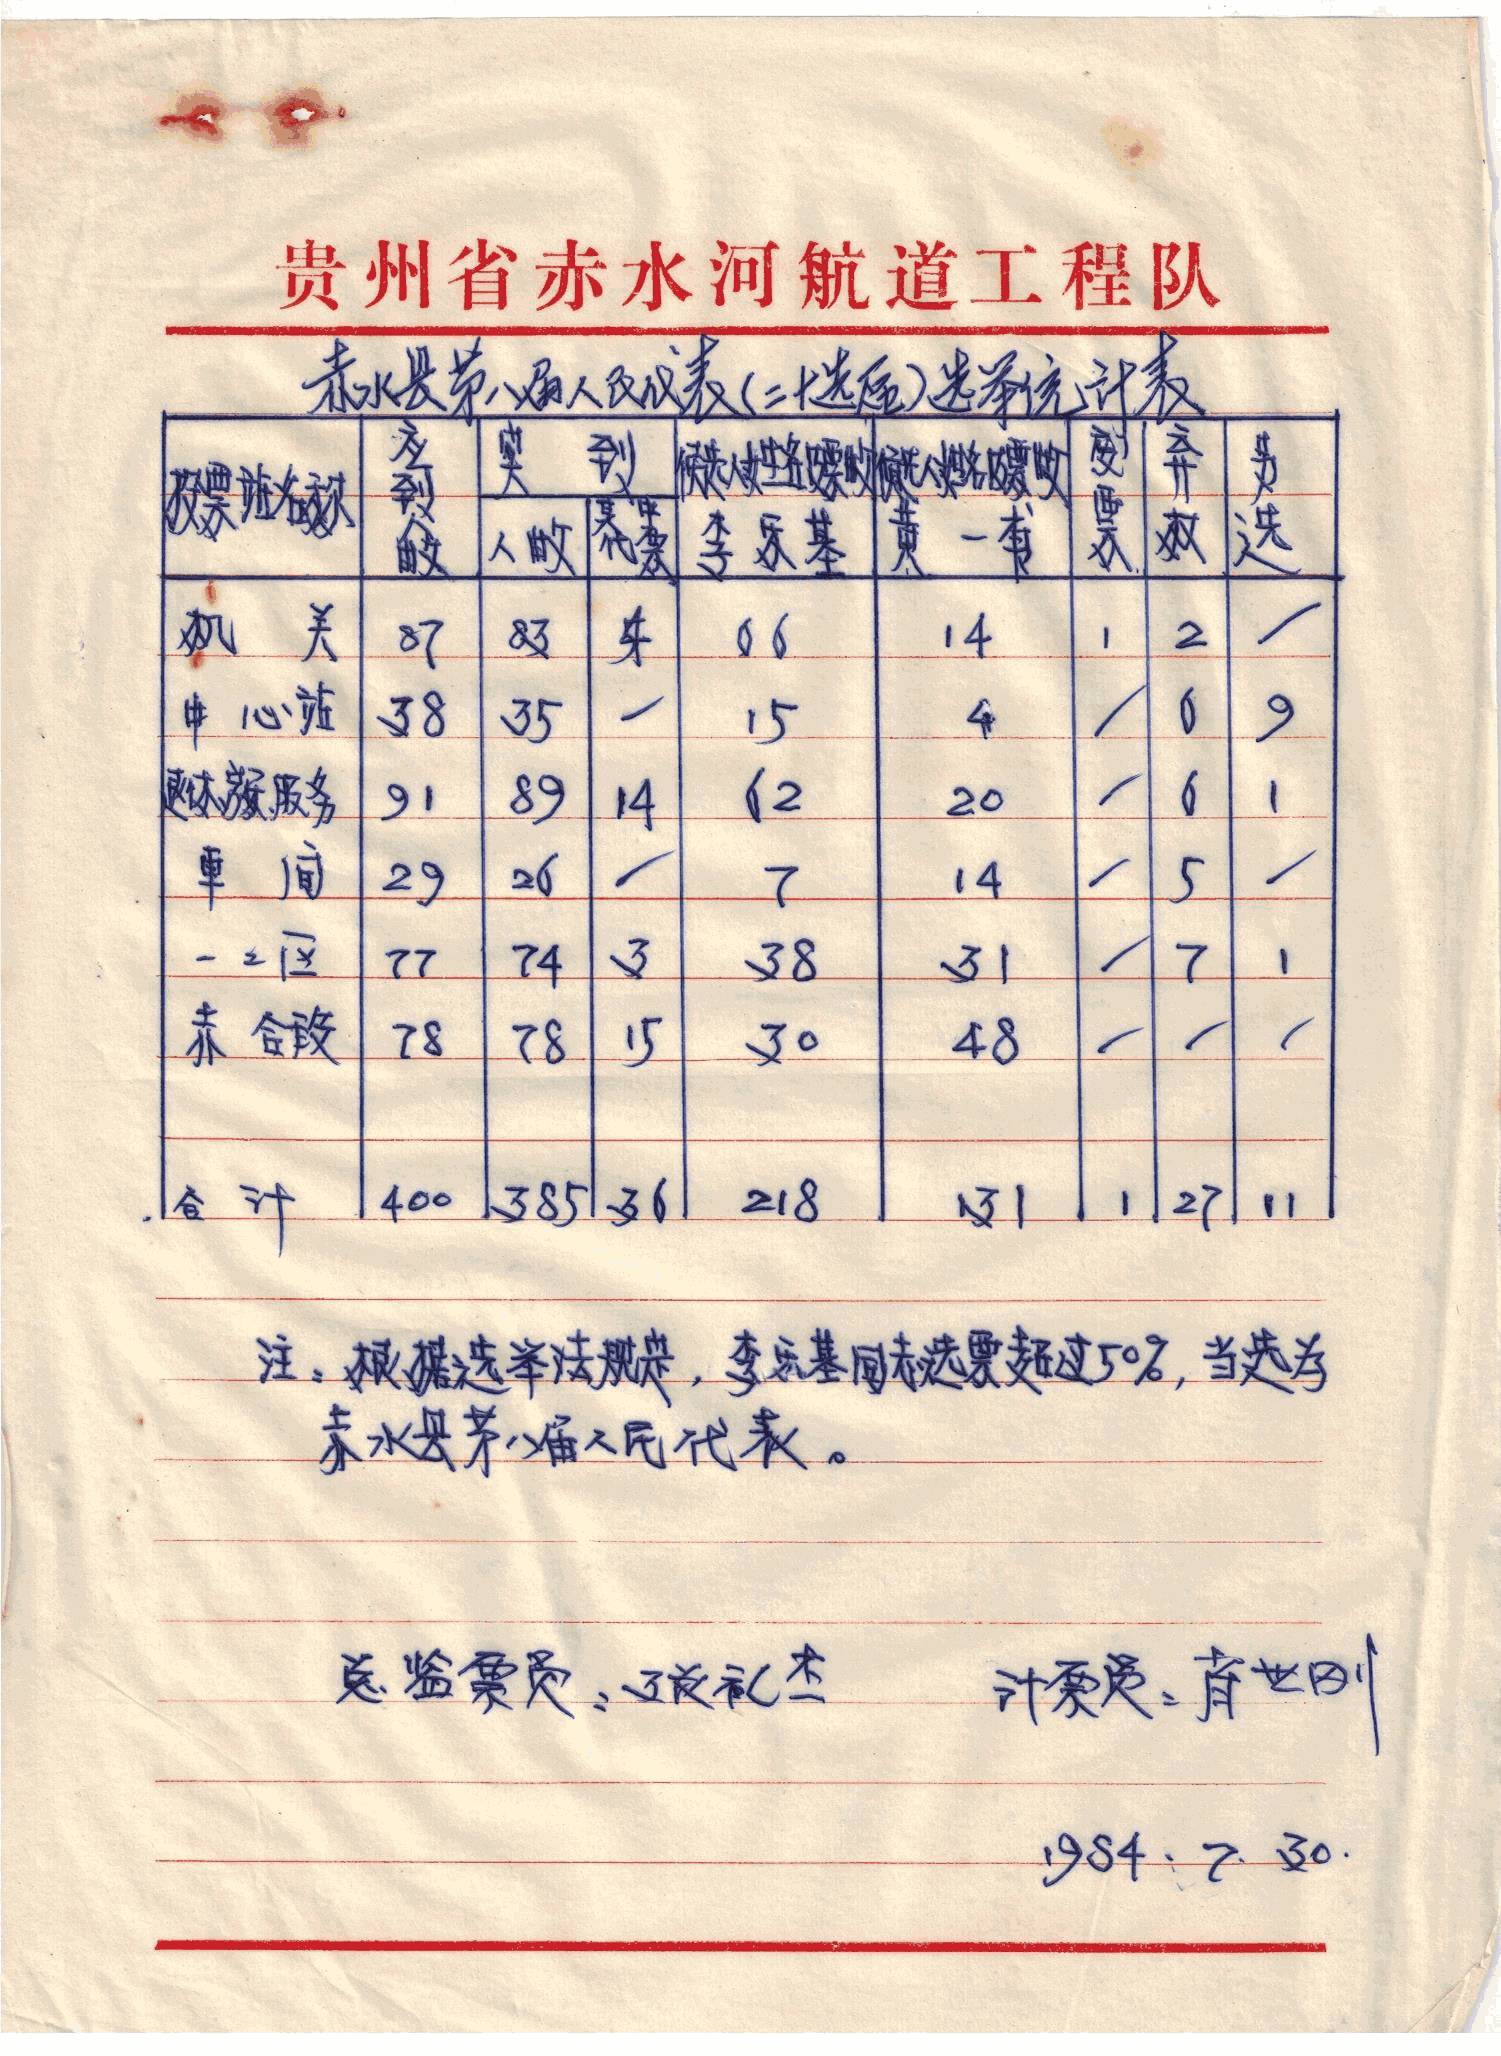 贵州省赤水河航道工程队
赤水县第八届人民代表(二十选区)选举统计表
投票站名称 应到人数 实到 候选人姓名及票数 候选人姓名及票数 废票 弃权 另选
人数 其中代票 李乐基 黄一书
机关 87 83 4 66 14 1 2 /
中心站 38 35 / 15 4 / 6 9
退休 服务 91 89 14 62 20 / 6 1
车间 29 26 / 7 14 / 5 /
一工区 77 74 3 38 31 / 7 1
赤合段 78 78 15 30 48 / / /
合计 400 385 36 218 131 1 27 11
注:根据选举法规定,李乐基同志选票超过50%,当选为
赤水县第八届人民代表。
总监票员: 礼杰 计票员:肖世刚
1984.7.30.